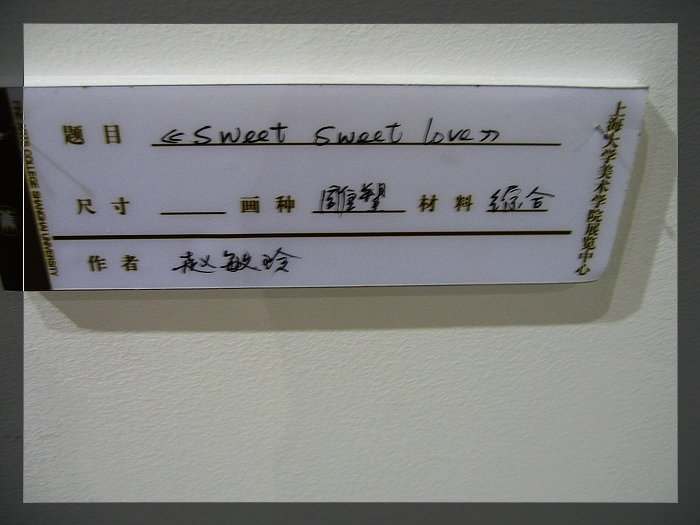 题目 《sweet sweet love》
尺寸 画种 雕塑 材料 综合
作者 赵敏玲
上海大学美术学院展览中心
COLLEGE SHANGHAI UNIVERSITY